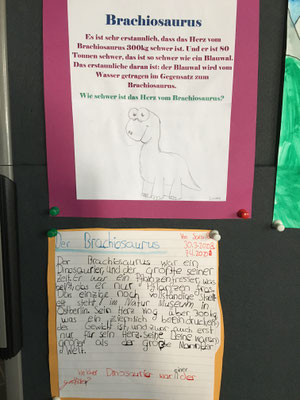 Brachiosaurus
Es ist sehr erstaunlich, dass das Herz vom
Brachiosaurus 300kg schwer ist. Und er ist 80
Tonnen schwer, das ist so schwer wie ein Blauwal.
Das erstaunliche daran ist: der Blauwal wird vom
Wasser getragen im Gegensatz zum
Brachiosaurus.
Wie schwer ist das Herz vom Brachiosaurus?
Der Brachiosaurus
Der Brachiosaurus war ein
Dinosaurier, und der größte seiner
Zeit. er war ein Pflanzenfresser, was
das er nur Pflanzen frass.
Das einzige noch vollständige
ist steht in Natur Museum in
Ostberlin. Sein Herz wog über 300kg
was ein ziemlich beeindruckendes
Gewicht ist und zwar auch erst
nur für sein Herz. Seine Beine waren
größer als der größte Mann der
Welt.
Dinosaurier war der